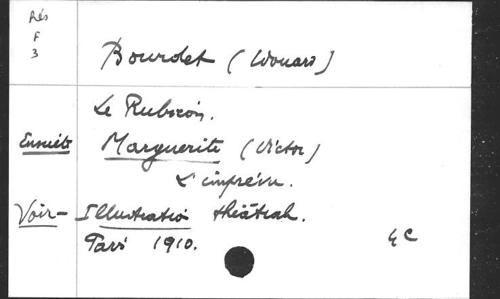 Rés
F
3
Bourdet (Edouard)
Le Rubicon.
Ensuite Margueritte (Victor)
L'imprévu.
Voir - Illustration théâtrale.
Paris 1910.